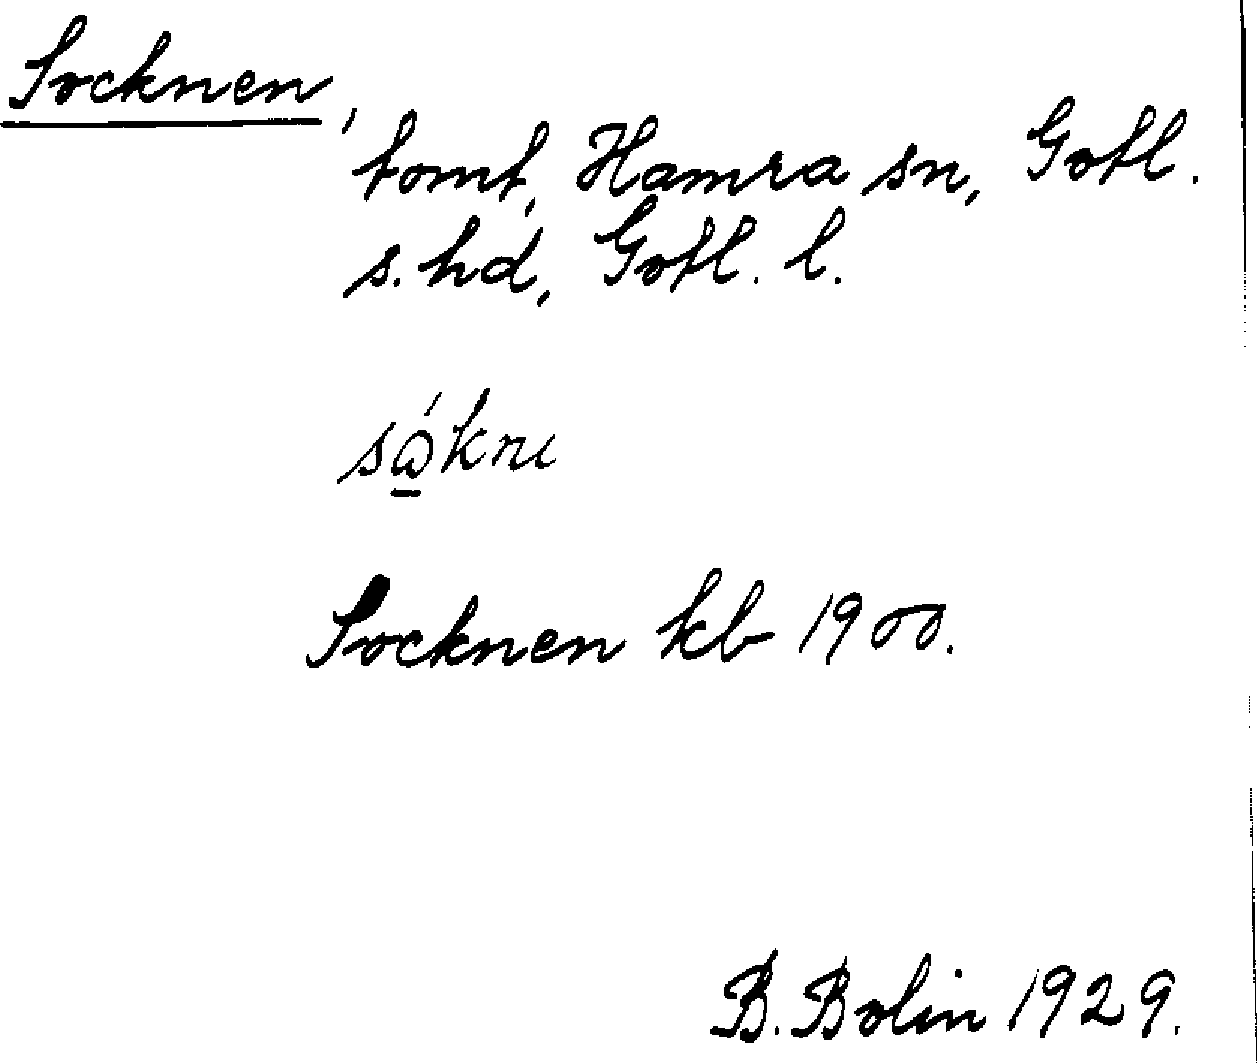 Socknen,
tomt, Hamra sn, Gotl.
s. hd, Gotl. l.
Socknen kb 1900.
B. Bolin 1929.